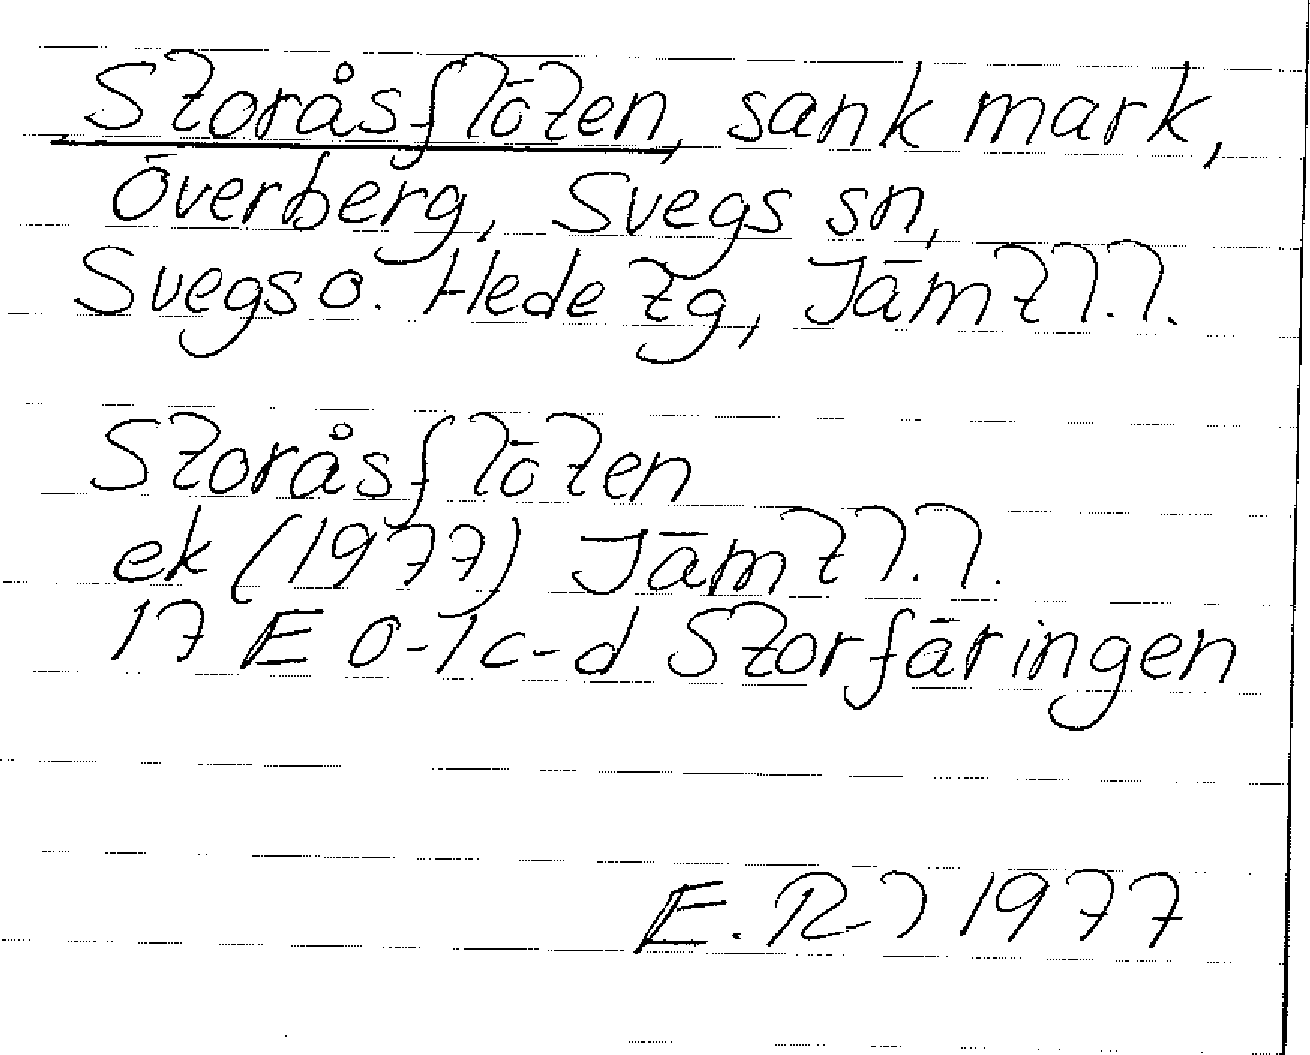 Storåsflöten, sank mark,
Överberg, Svegs sn,
Svegs o. Hede tg, Jämtl.l.
Storåsflöten
ek (1977) Jämtl.l.
17 E 0-1c-d Storfäringen
E. Rl 1977